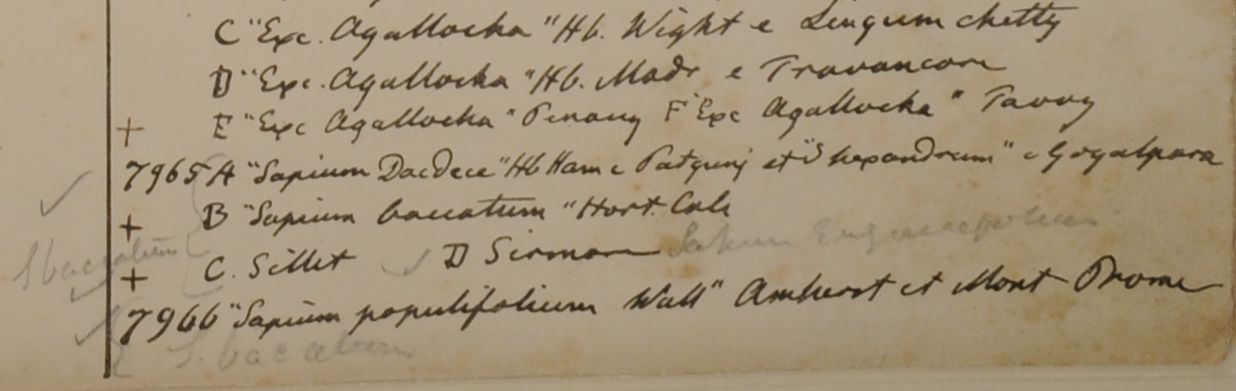 C "Exc. Agallocha" Hb. Wight e Lingum chetty
D "Exc. Agallocha" Hb. Madr e Travancore
+ E "Exc Agallocha" Penang F "Exc Agallocha" Tavoy
7965 A "Sapium Dacdece" Hb Ham e Patgunj et "S hexandrum" e Goyalpara
+ B "Sapium baccatum" Hort. Calc
S baccatum
+ C. Sillet D Sirmore
7966 "Sapium populifolium Wall" Amherst et Mont Prome
S. baccatum